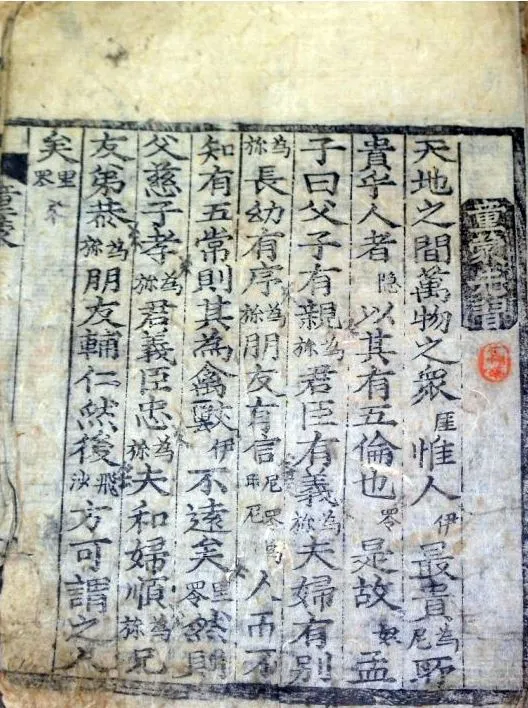 童蒙先習
天地之間萬物之衆厓惟人伊最貴為尼所
貴乎人者隐以其有五倫也罗是故奴孟
子曰父子有親為旀君臣有義為旀夫婦有別
為旀長幼有序為旀朋友有信尼罗為尼人而不
知有五常則其為禽獸伊不遠矣里罗然則
父慈子孝為旀君義臣忠為旀夫和婦順為旀兄
友弟恭為旀朋友輔仁然後飛沙方可謂之人
矣里罗
童蒙